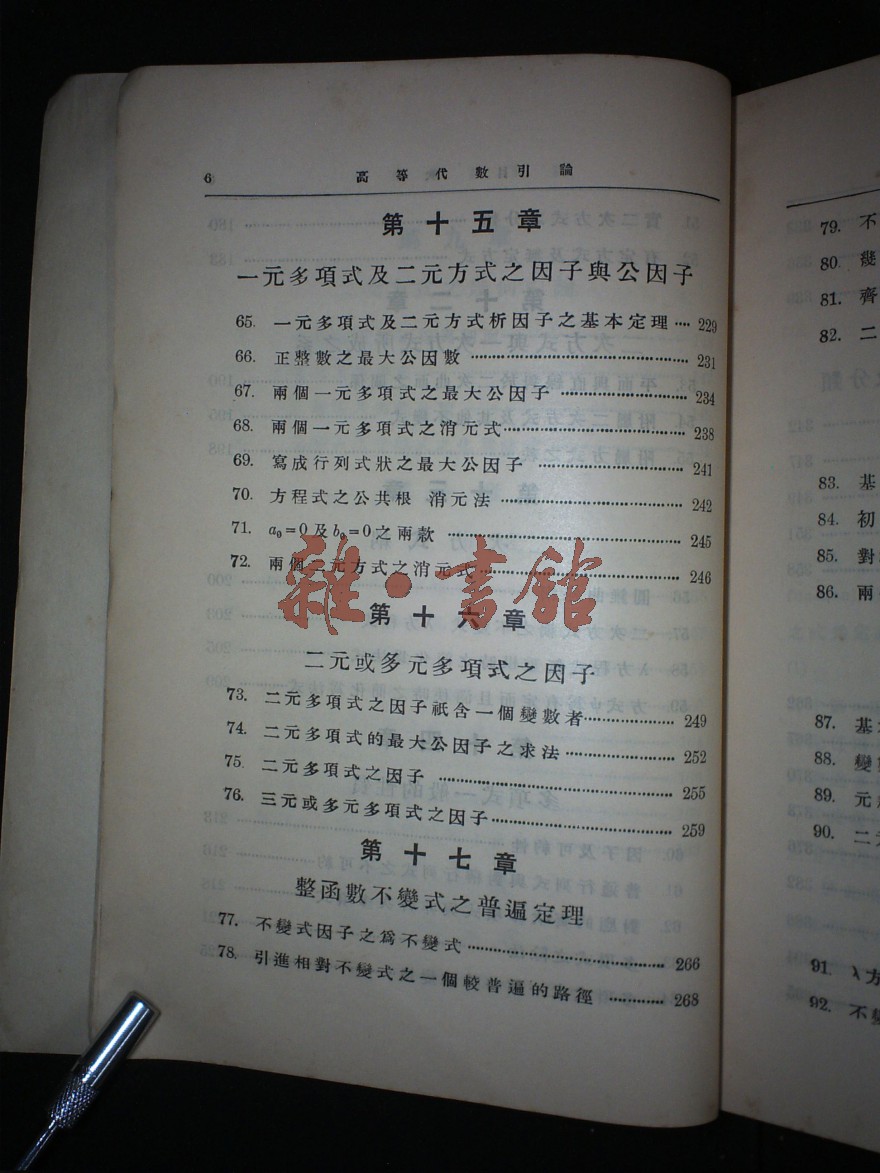 6 高等代數引論
第十五章
一元多項式及二元方式之因子與公因子
65. 一元多項式及二元方式析因子之基本定理 .... 229
66. 正整數之最大公因數 .... 231
67. 兩個一元多項式之最大公因子 .... 234
68. 兩個一元多項式之消元式 .... 238
69. 寫成行列式狀之最大公因子 .... 241
70. 方程式之公共根 消元法 .... 242
71. a₀=0及b₀=0之兩款 .... 245
72. 兩個二元方式之消元式 .... 246
雜·書館
第十六章
二元或多元多項式之因子
73. 二元多項式之因子祇含一個變數者 .... 249
74. 二元多項式的最大公因子之求法 .... 252
75. 二元多項式之因子 .... 255
76. 三元或多元多項式之因子 .... 259
第十七章
整函數不變式之普遍定理
77. 不變式因子之爲不變式 .... 266
78. 引進相對不變式之一個較普遍的路徑 .... 268
79. 不
80. 幾
81. 齊
82. 二
83. 基
84. 初
85. 對
86. 兩
87. 基
88. 變
89. 元
90. 二
91. λ方
92. 不變